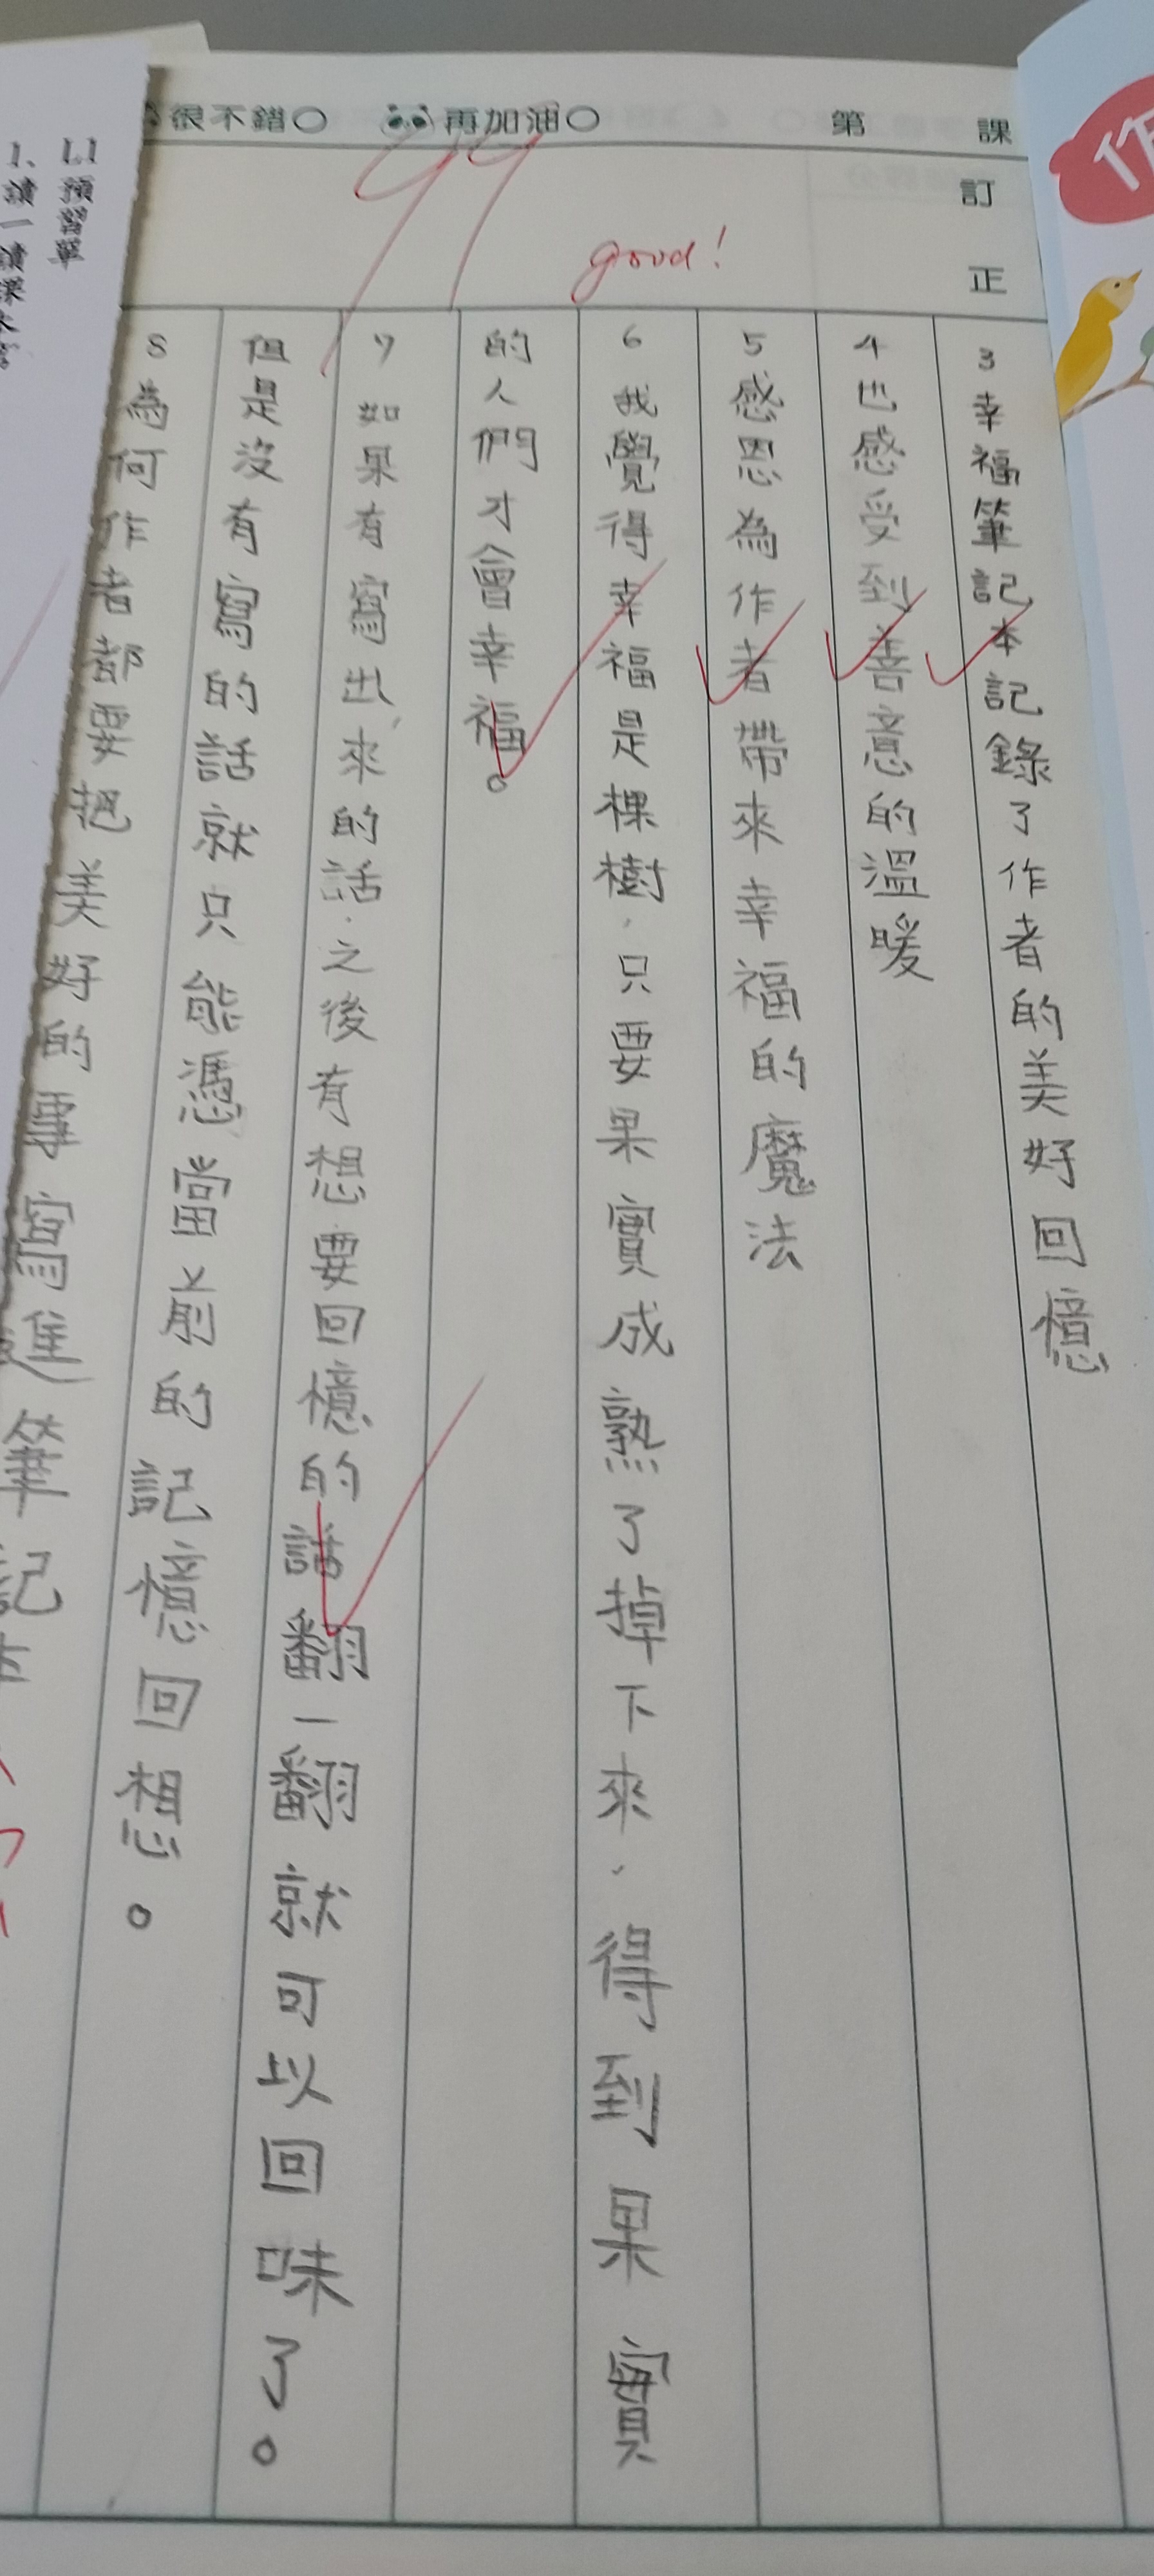 很不錯○ 再加油○ 第 課
訂正
99
good!
3幸福筆記本記錄了作者的美好回憶
4也感受到善意的溫暖
5感恩為作者帶來幸福的魔法
6我覺得幸福是棵樹，只要果實成熟了掉下來，得到果實
的人們才會幸福。
7如果有寫出來的話，之後有想要回憶的話翻一翻就可以回味了。
但是沒有寫的話就只能憑當前的記憶回想。
8為何作者都要把美好的事寫進筆記本
L1預習單
1、讀一讀課
作